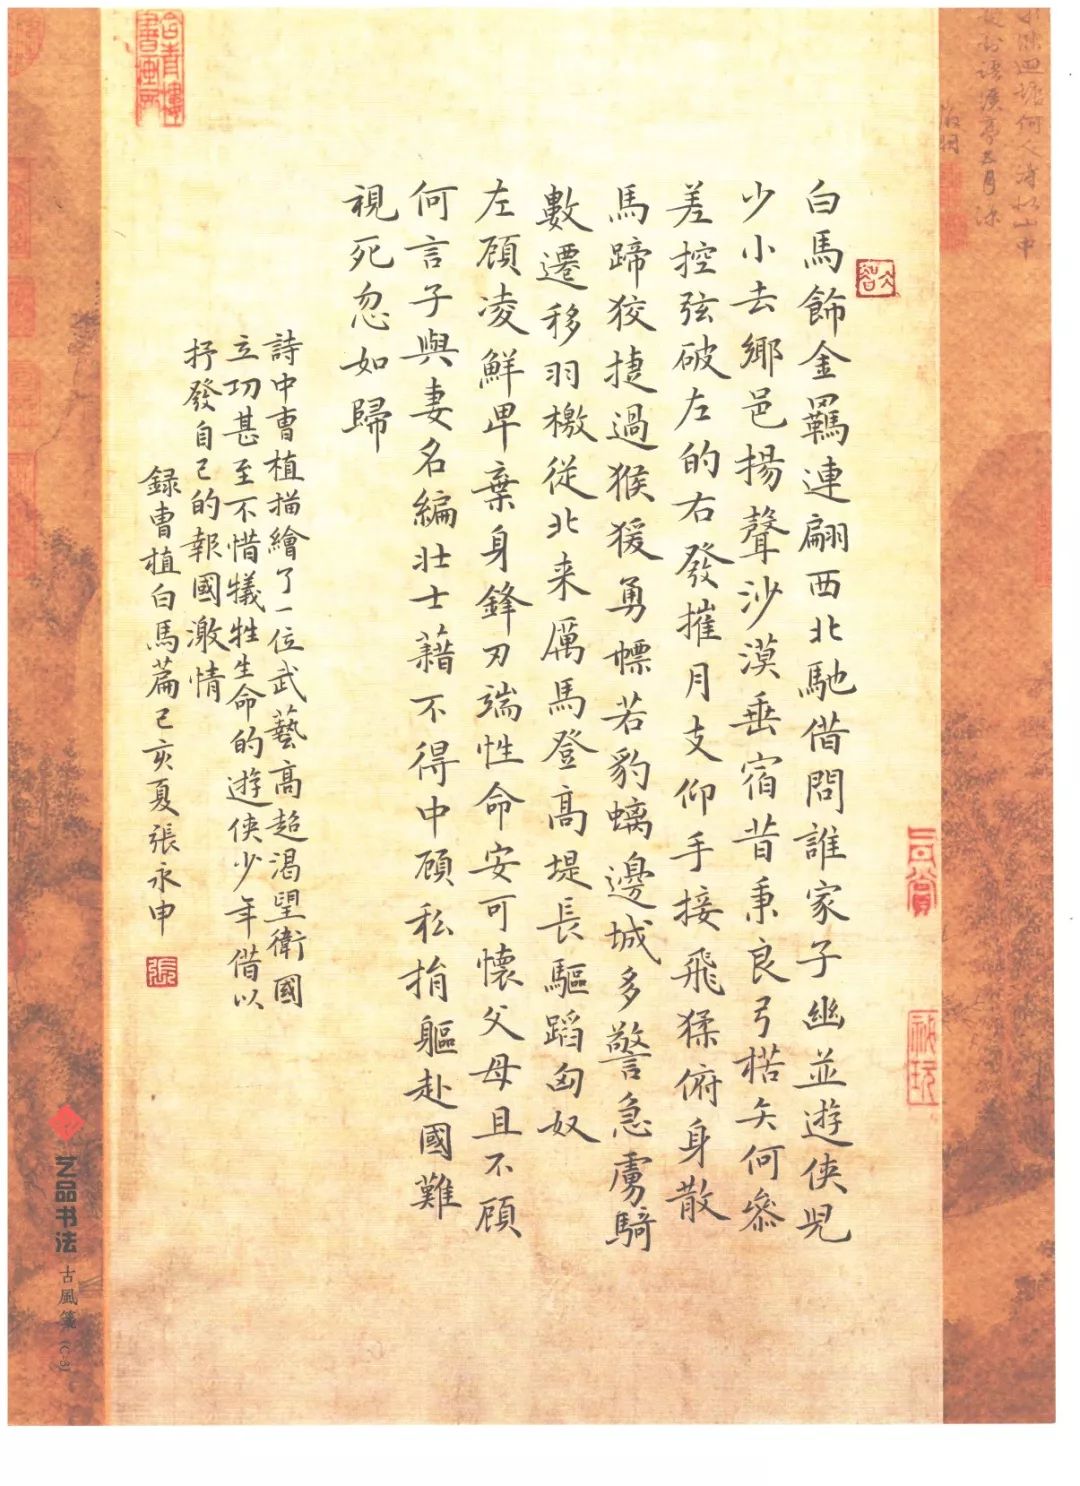 白馬飾金羈連翩西北馳借問誰家子幽並遊俠児
少小去鄉邑揚聲沙漠垂宿昔秉良弓楛矢何參
差控弦破左的右發摧月支仰手接飛猱俯身散
馬蹄狡捷過猴猨勇幖若豹螭邊城多警急虜騎
數遷移羽檄從北来厲馬登高堤長驅蹈匈奴
左顧凌鮮卑棄身鋒刃端性命安可懷父母且不顧
何言子與妻名編壯士藉不得中顧私捐軀赴國難
視死忽如歸
詩中曹植描繪了一位武藝高超渴望衛國
立功甚至不惜犠牲生命的遊俠少年借以
抒發自己的報國激情
録曹植白馬篇己亥夏張永申
張
艺品书法
古風箋
(C-3)